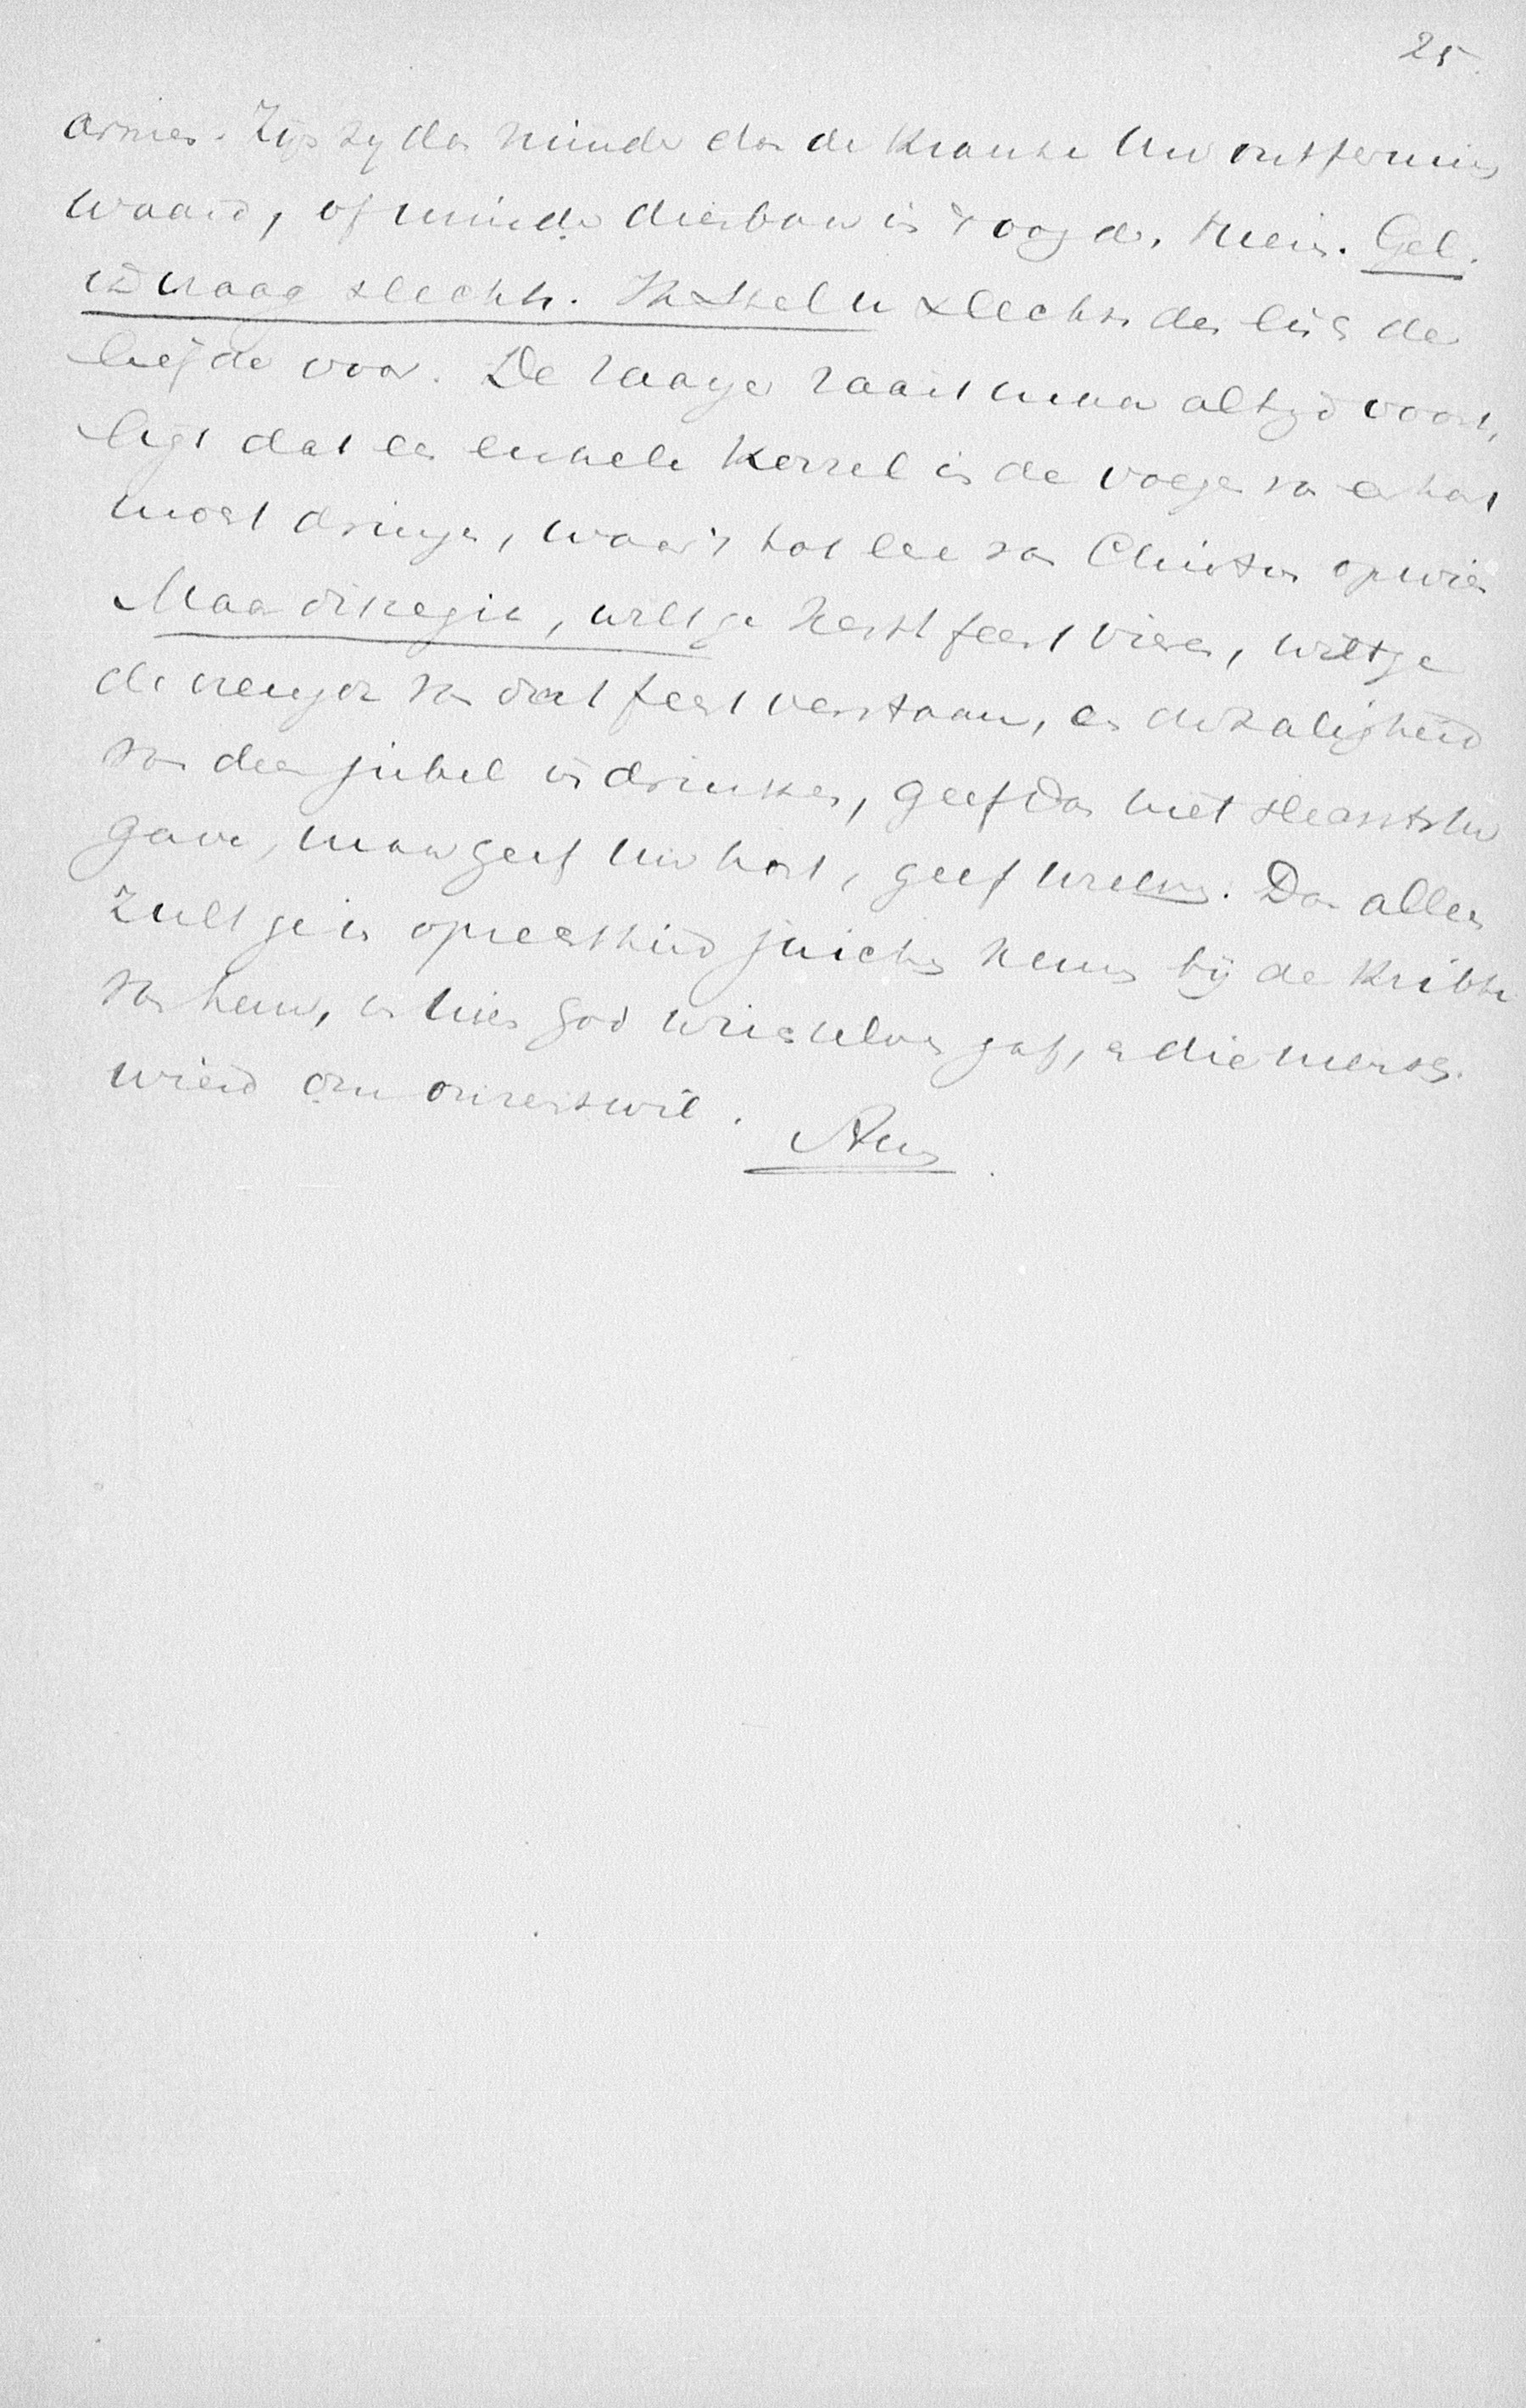 25.
armen. Zijn zy dan minder dan de kranke Uw ontferming
waard, of minder dierbaar in 't oog des Heeren. Gel.
ik vraag slechts. Ik stel u slechts den eisch der
liefde voor. De zaayer zaait maar altyd voort,
ligt dat een enkele korrel in de voegen van een hart
mogt dringen, waar 't zaad van Christus opwies
Maar dit zeg ik, wilt ge Kerstfeest vieren, wilt ge
de vreugde van dat feest verstaan, en de zaligheid
van den jubel indrinken, geef dan niet slechts Uw
gave, maar geef Uw hart, geef Uzelven. Dan alleen
zult ge in opregtheid juichen kunnen bij de kribbe
van hem, in wien God zich zelven gaf, en die mensch
wierd om onzentwil.
Amen